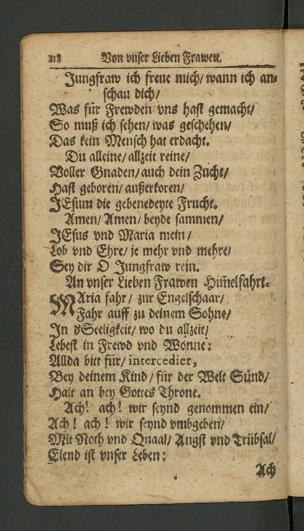 218 Von vnser Lieben Frawen.
Jungfraw ich frewe mich/ wann ich an-
schau dich/
Was für Frewden vns hast gemacht/
So muß ich sehen/ was geschehen/
Das kein Mensch hat erdacht.
Du alleine/ allzeit reine/
Voller Gnaden/ auch dein Zucht/
Hast geboren/ außerkoren/
JEsum die gebenedeyte Frucht.
Amen/ Amen/ beyde sammen/
JEsus vnd Maria mein/
Lob vnd Ehre/ je mehr vnd mehre/
Sey dir O Jungfraw rein.
An vnser Lieben Frawen Him̃elfahrt.
MAria fahr/ zur Engelschaar/
Fahr auff zu deinem Sohne/
In d'Seeligkeit/ wo du allzeit/
Lebest in Frewd vnd Wonne:
Allda bitt für/ intercedier,
Bey deinem Kind/ für der Welt Sünd/
Halt an bey Gottes Throne.
Ach! ach! wir seynd genommen ein/
Ach! ach! wir seynd vmbgeben/
Mit Noth vnd Quaal/ Angst vnd Trübsal/
Elend ist vnser Leben:
Ach